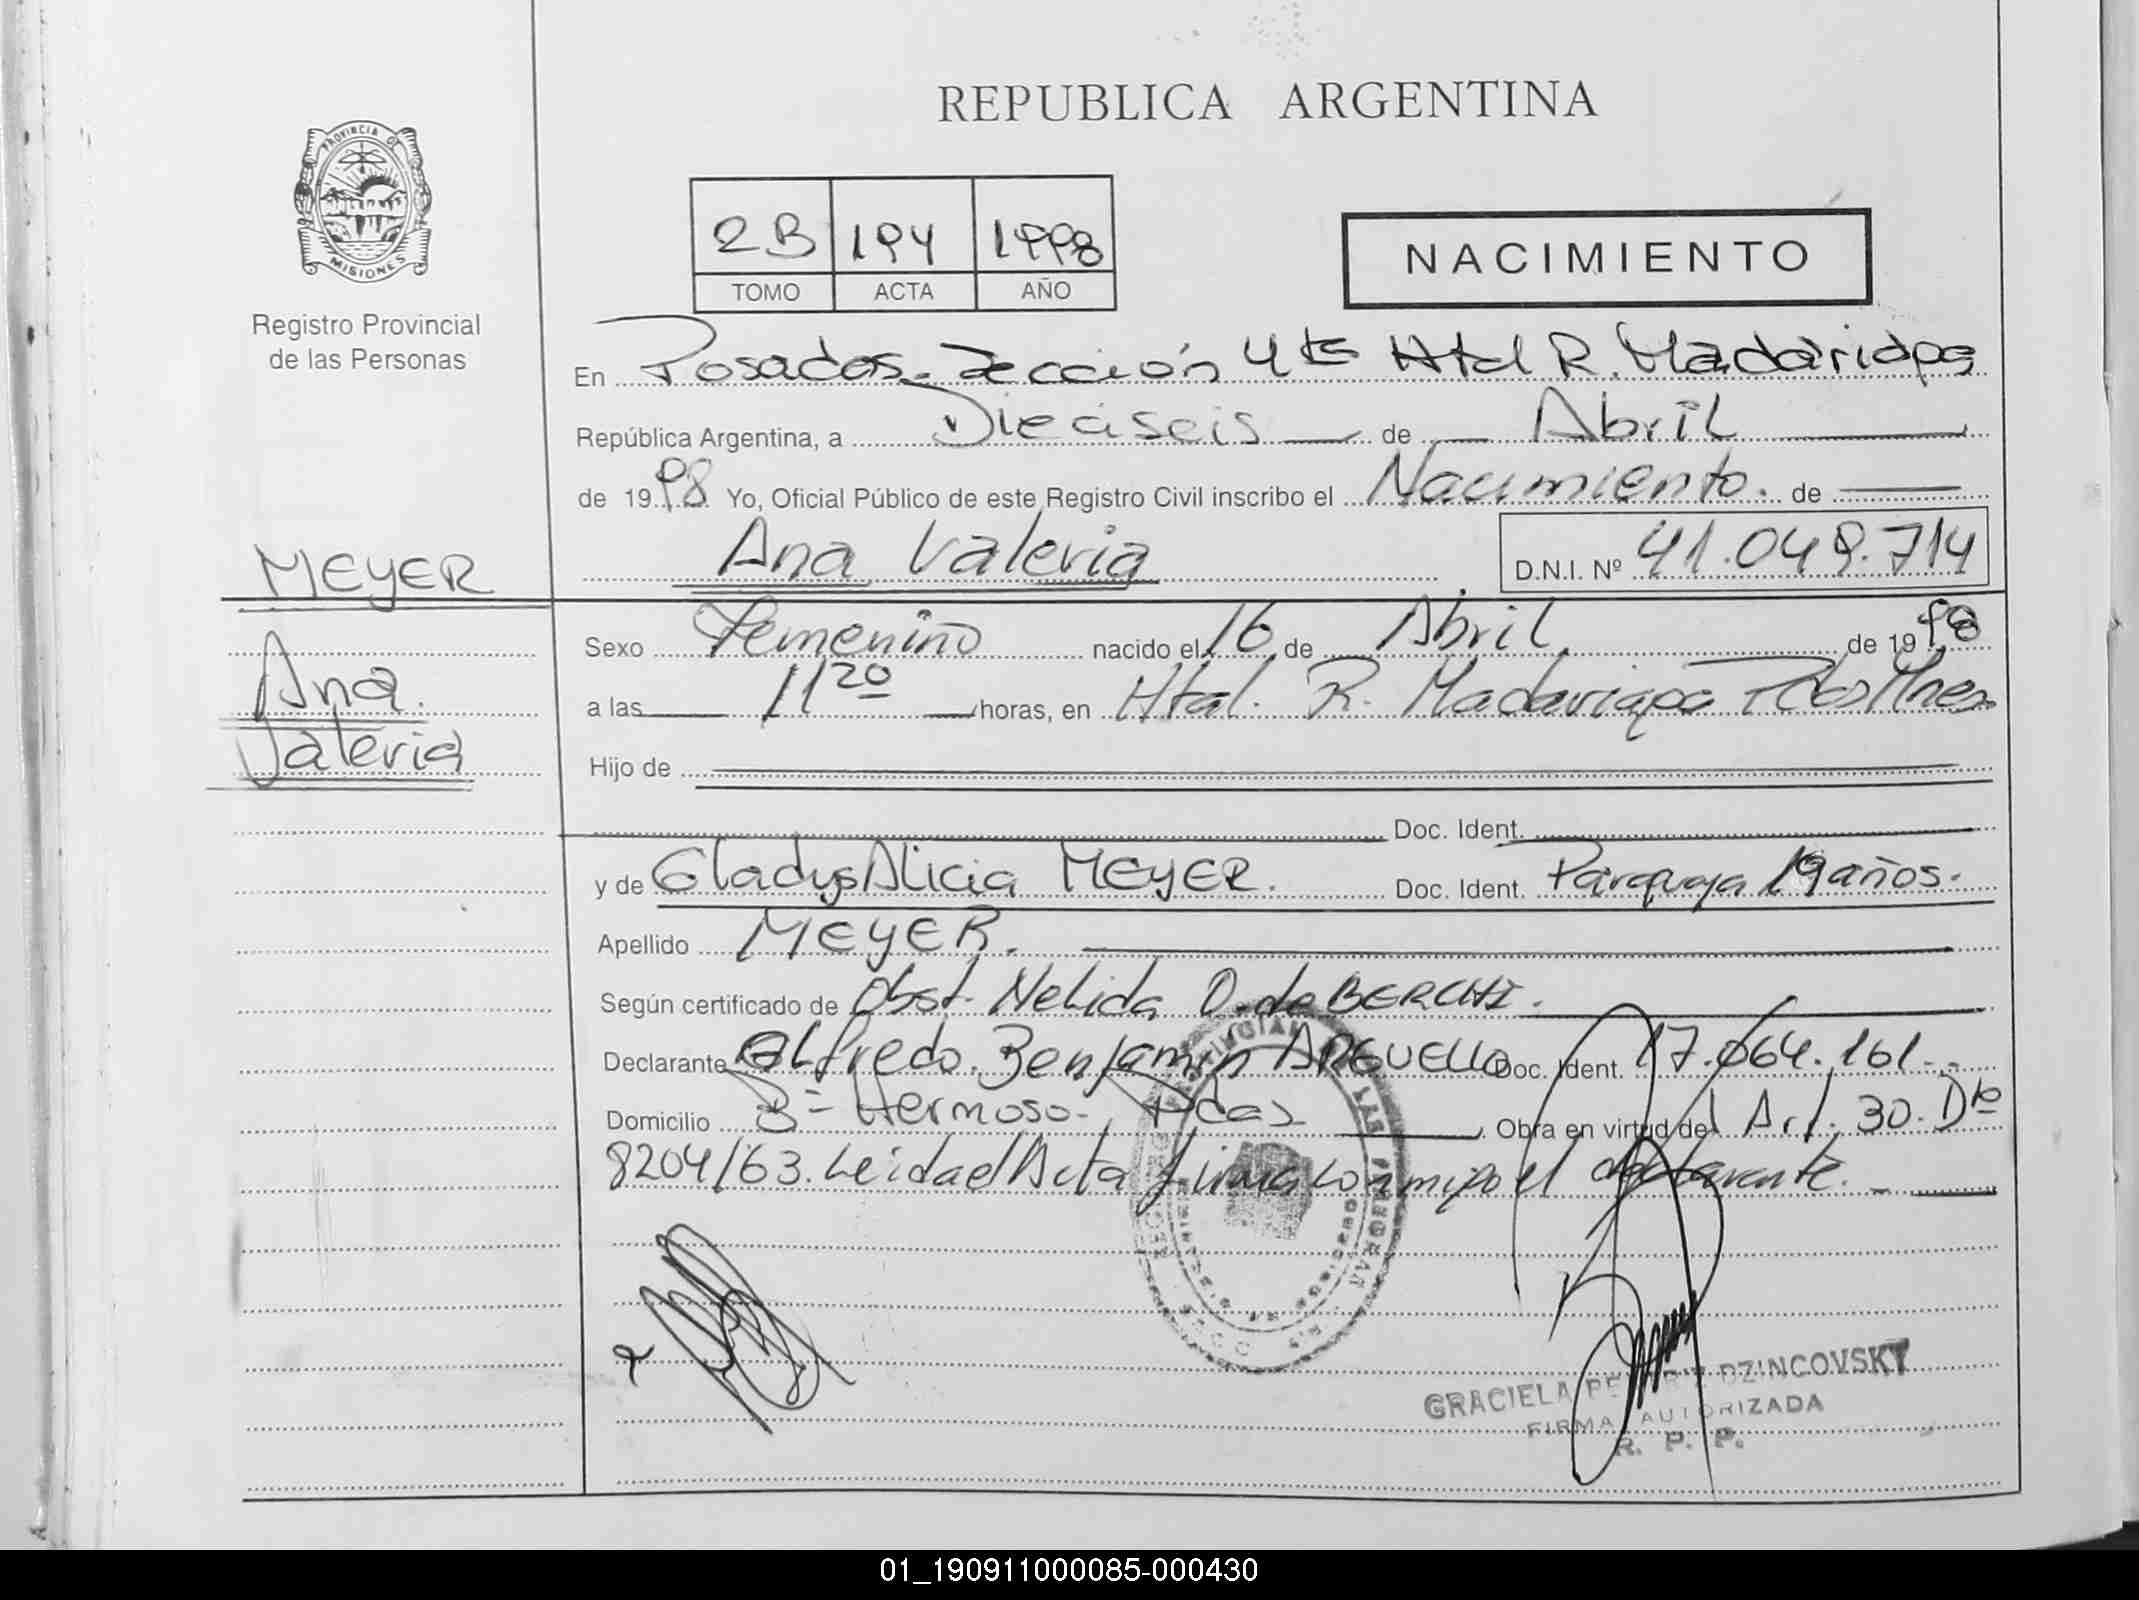 PROVINCIA DE
MISIONES
Registro Provincial
de las Personas
MEYER
Ana
Valeria
REPUBLICA ARGENTINA
2B 194 1998
TOMO ACTA AÑO
NACIMIENTO
En Posadas. Sección 4ta Htal R. Madariaga
República Argentina, a Dieciseis de Abril
de 1998 Yo, Oficial Público de este Registro Civil inscribo el Nacimiento. de
Ana Valeria D.N.I. Nº 41.049.714
Sexo Femenino nacido el 16 de Abril de 1998
a las 11 20 horas, en Htal. R. Madariaga Pdas Mnes
Hijo de
Doc. Ident.
y de Gladys Alicia MEYER. Doc. Ident. Paraguaya 19 años.
Apellido MEYER.
Según certificado de Obst. Nelida O. de BERCHI.
Declarante Alfredo Benjamin ARGUELLO Doc. Ident. 17.064.161
Domicilio B= Hermoso- Pdas Obra en virtud del Art. 30. Dto
8204/63. Leida el Acta firma conmigo el declarante.
GRACIELA DZINCOVSKY
FIRMA AUTORIZADA
R. P. P.
01_190911000085-000430